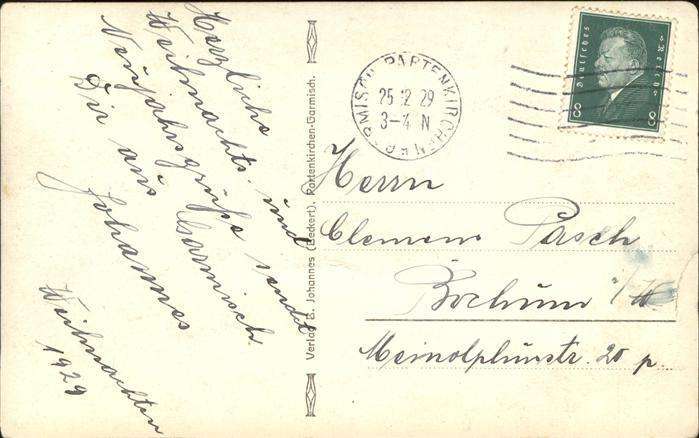 Herzliche
Weihnachts- und
Neujahrsgrüße sendet
Dir aus Garmisch
Johannes
Weihnachten
1929
Verlag B. Johannes (Beckert), Partenkirchen-Garmisch.
GARMISCH-PARTENKIRCHEN
25 12 29
3-4 N
Deutsches Reich
8 8
Herrn
Clemens Pasch
Bochum i/W
Meinolphusstr. 20 p.